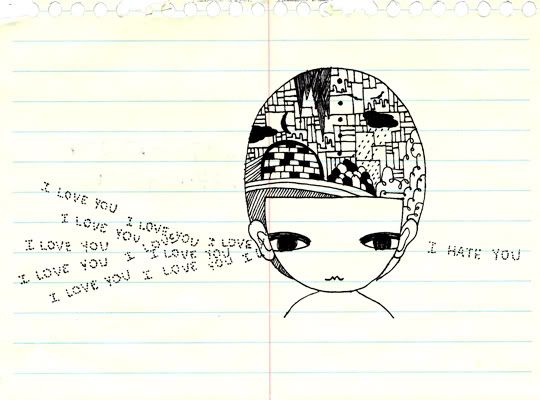 I LOVE YOU
I LOVE YOU I LOVE YOU
I LOVE YOU LOVE I LOVE Y
I LOVE YOU I I LOVE YOU
I LOVE YOU I LOVE YOU I
I HATE YOU